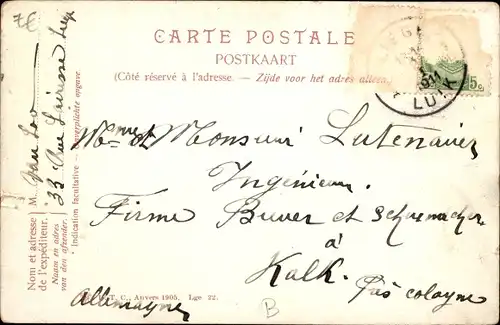 7€
CARTE POSTALE
POSTKAART
(Côté réservé à l'adresse. — Zijde voor het adres alleen.)
LUIK
5c
Nom et adresse de l'expéditeur.
Naam en adres van den afzender.
M. Van Loo
33 Rue Lairesse Liège
* Indication facultative — Onverplichte opgave.
Mme et Monsieur Lutenauer
Ingénieur
Firme Buver et Schumacher
à
Kalk.
Près cologne
Allemagne
T. C., Anvers 1905. Lge 22.
B